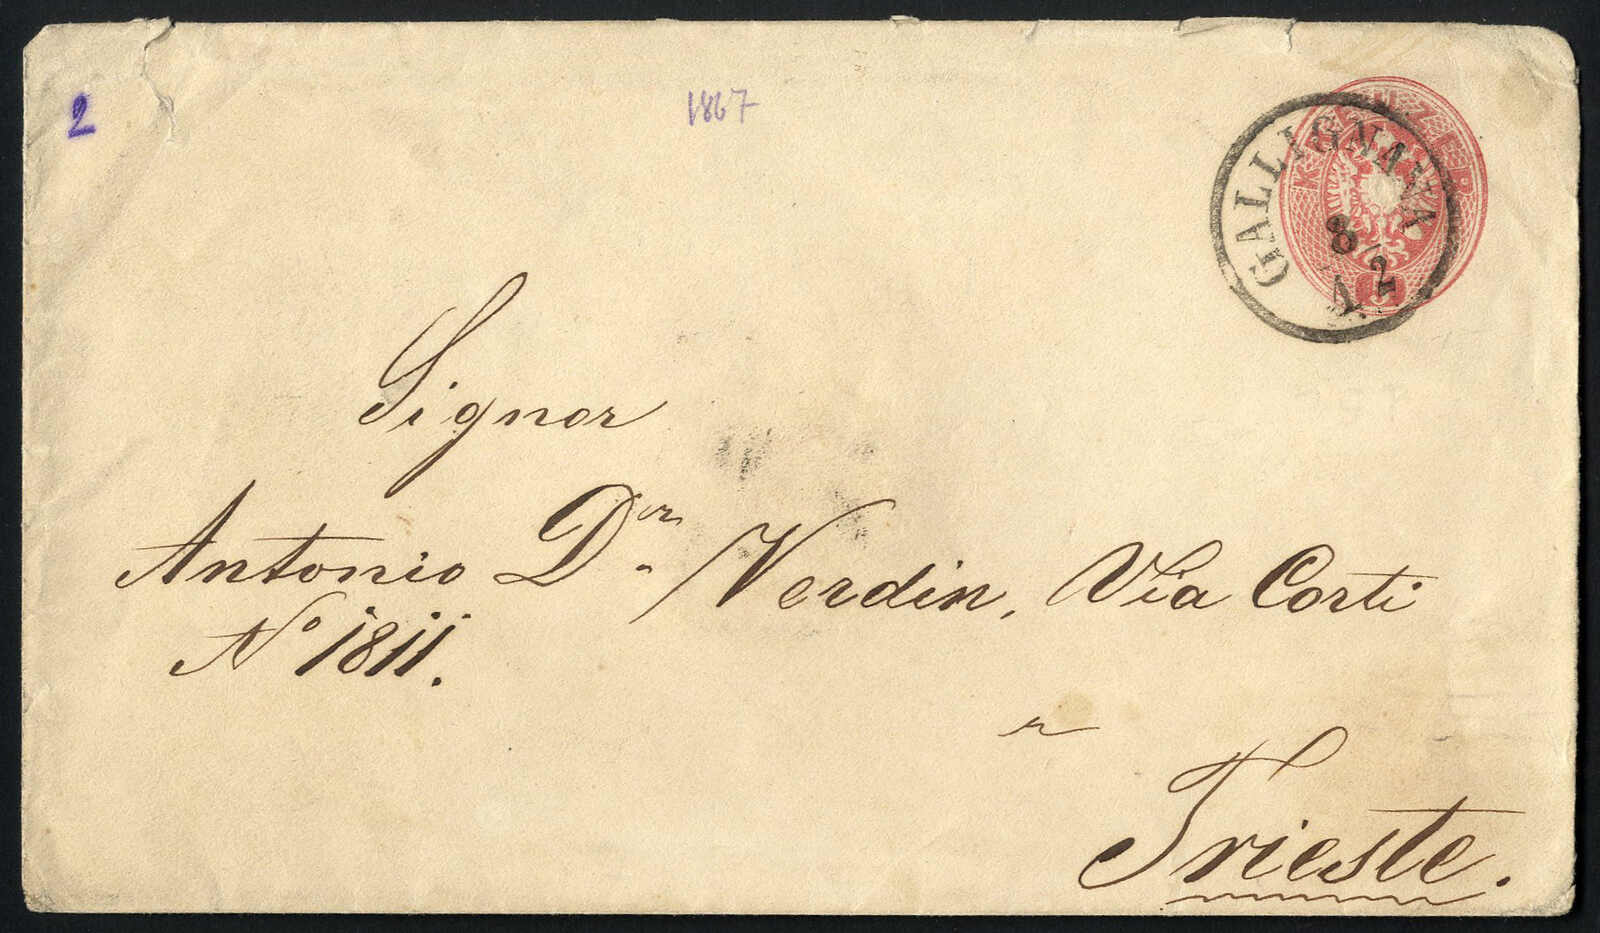 2
1867
KREUZER
5
GALLIGNANA
8/2
Signor
Antonio Dr. Verdin, Via Corti
No 1811.
Trieste.